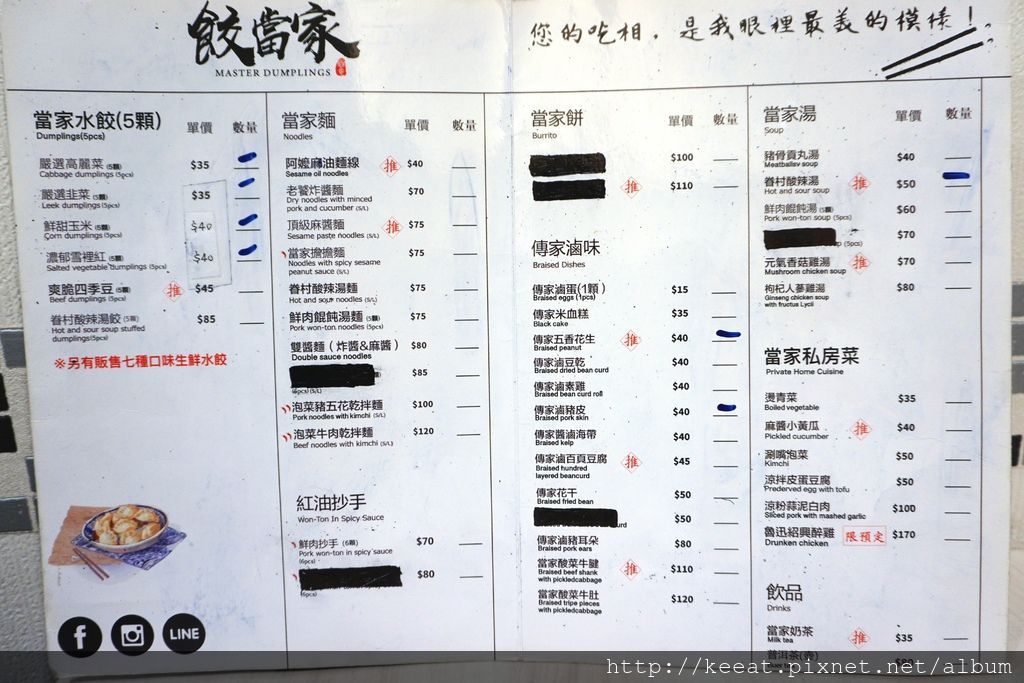 餃當家
MASTER DUMPLINGS
您的吃相，是我眼裡最美的模樣！
當家水餃(5顆) 單價 數量
Dumplings(5pcs)
嚴選高麗菜(5顆) $35
Cabbage dumplings (5pcs)
嚴選韭菜(5顆) $35
Leek dumplings (5pcs)
鮮甜玉米(5顆) $40
Corn dumplings (5pcs)
濃郁雪裡紅(5顆) $40
Salted vegetable dumplings (5pcs)
爽脆四季豆(5顆) 推 $45
Beef dumplings (5pcs)
眷村酸辣湯餃(5顆) $85
Hot and sour soup stuffed
dumplings(5pcs)
※另有販售七種口味生鮮水餃
LINE
當家麵 單價 數量
Noodles
阿嬤麻油麵線 推 $40
Sesame oil noodles
老饕炸醬麵 $70
Dry noodles with minced
pork and cucumber (S/L)
頂級麻醬麵 推 $75
Sesame paste noodles (S/L)
當家擔擔麵 $75
Noodles with spicy sesame
peanut sauce (S/L)
眷村酸辣湯麵 $75
Hot and sour noodles (S/L)
鮮肉餛飩湯麵(5顆) $75
Pork won-ton noodles (5pcs)
雙醬麵（炸醬&麻醬） $80
Double sauce noodles
$85
(6pcs) (S/L)
泡菜豬五花乾拌麵 $100
Pork noodles with kimchi (S/L)
泡菜牛肉乾拌麵 $120
Beef noodles with kimchi (S/L)
紅油抄手
Won-Ton In Spicy Sauce
鮮肉抄手(6顆) $70
Pork won-ton in spicy sauce
(6pcs)
$80
(6pcs)
當家餅 單價 數量
Burrito
$100
推 $110
傳家滷味
Braised Dishes
傳家滷蛋(1顆) $15
Braised eggs (1pcs)
傳家米血糕 $35
Black cake
傳家五香花生 推 $40
Braised peanut
傳家滷豆乾 $40
Braised dried bean curd
傳家滷素雞 $40
Braised bean curd roll
傳家滷豬皮 $40
Braised pork skin
傳家醬滷海帶 $40
Braised kelp
傳家滷百頁豆腐 推 $45
Braised hundred
layered beancurd
傳家花干 $50
Braised fried bean
$50
傳家滷豬耳朵 $80
Braised pork ears
傳家酸菜牛腱 推 $110
Braised beef shank
with pickledcabbage
當家酸菜牛肚 $120
Braised tripe pieces
with pickledcabbage
當家湯 單價 數量
Soup
豬骨貢丸湯 $40
Meatballsv soup
眷村酸辣湯 推 $50
Hot and sour soup
鮮肉餛飩湯(5顆) $60
Pork won-ton soup (5pcs)
(5pcs) $70
元氣香菇雞湯 推 $70
Mushroom chicken soup
枸杞人蔘雞湯 $80
Ginseng chicken soup
with fructus Lycii
當家私房菜
Private Home Cuisine
燙青菜 $35
Boiled vegetable
麻醬小黃瓜 推 $40
Pickled cucumber
涮嘴泡菜 $50
Kimchi
涼拌皮蛋豆腐 $50
Prederved egg with tofu
涼粉蒜泥白肉 $100
Sliced pork with mashed garlic
魯迅紹興醉雞 限預定 $170
Drunken chicken
飲品
Drinks
當家奶茶 推 $35
Milk tea
普洱茶(壺)
http://keeat.pixnet.net/album